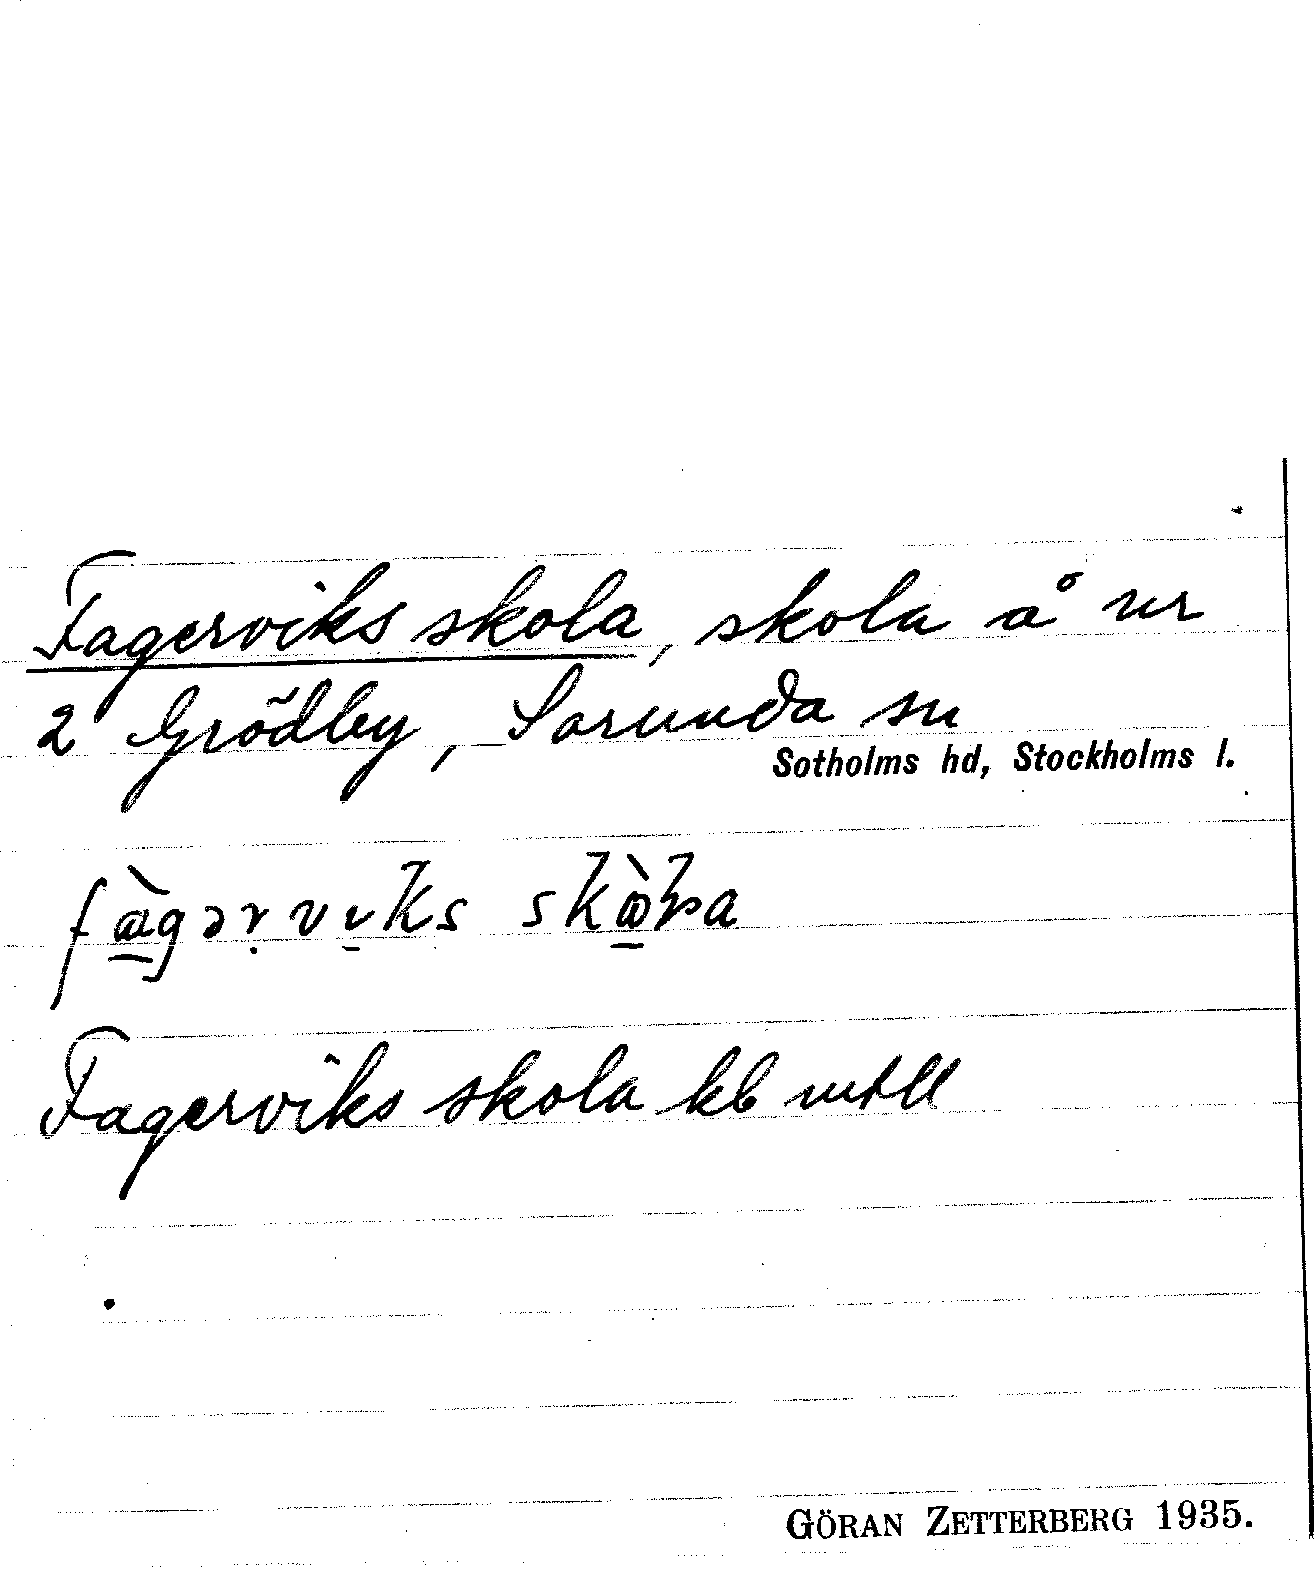 Fagerviks skola, skola å nr
2 Grödby, Sorunda sn
Sotholms hd, Stockholms l.
Fagerviks skola kb mtll
GÖRAN ZETTERBERG 1935.